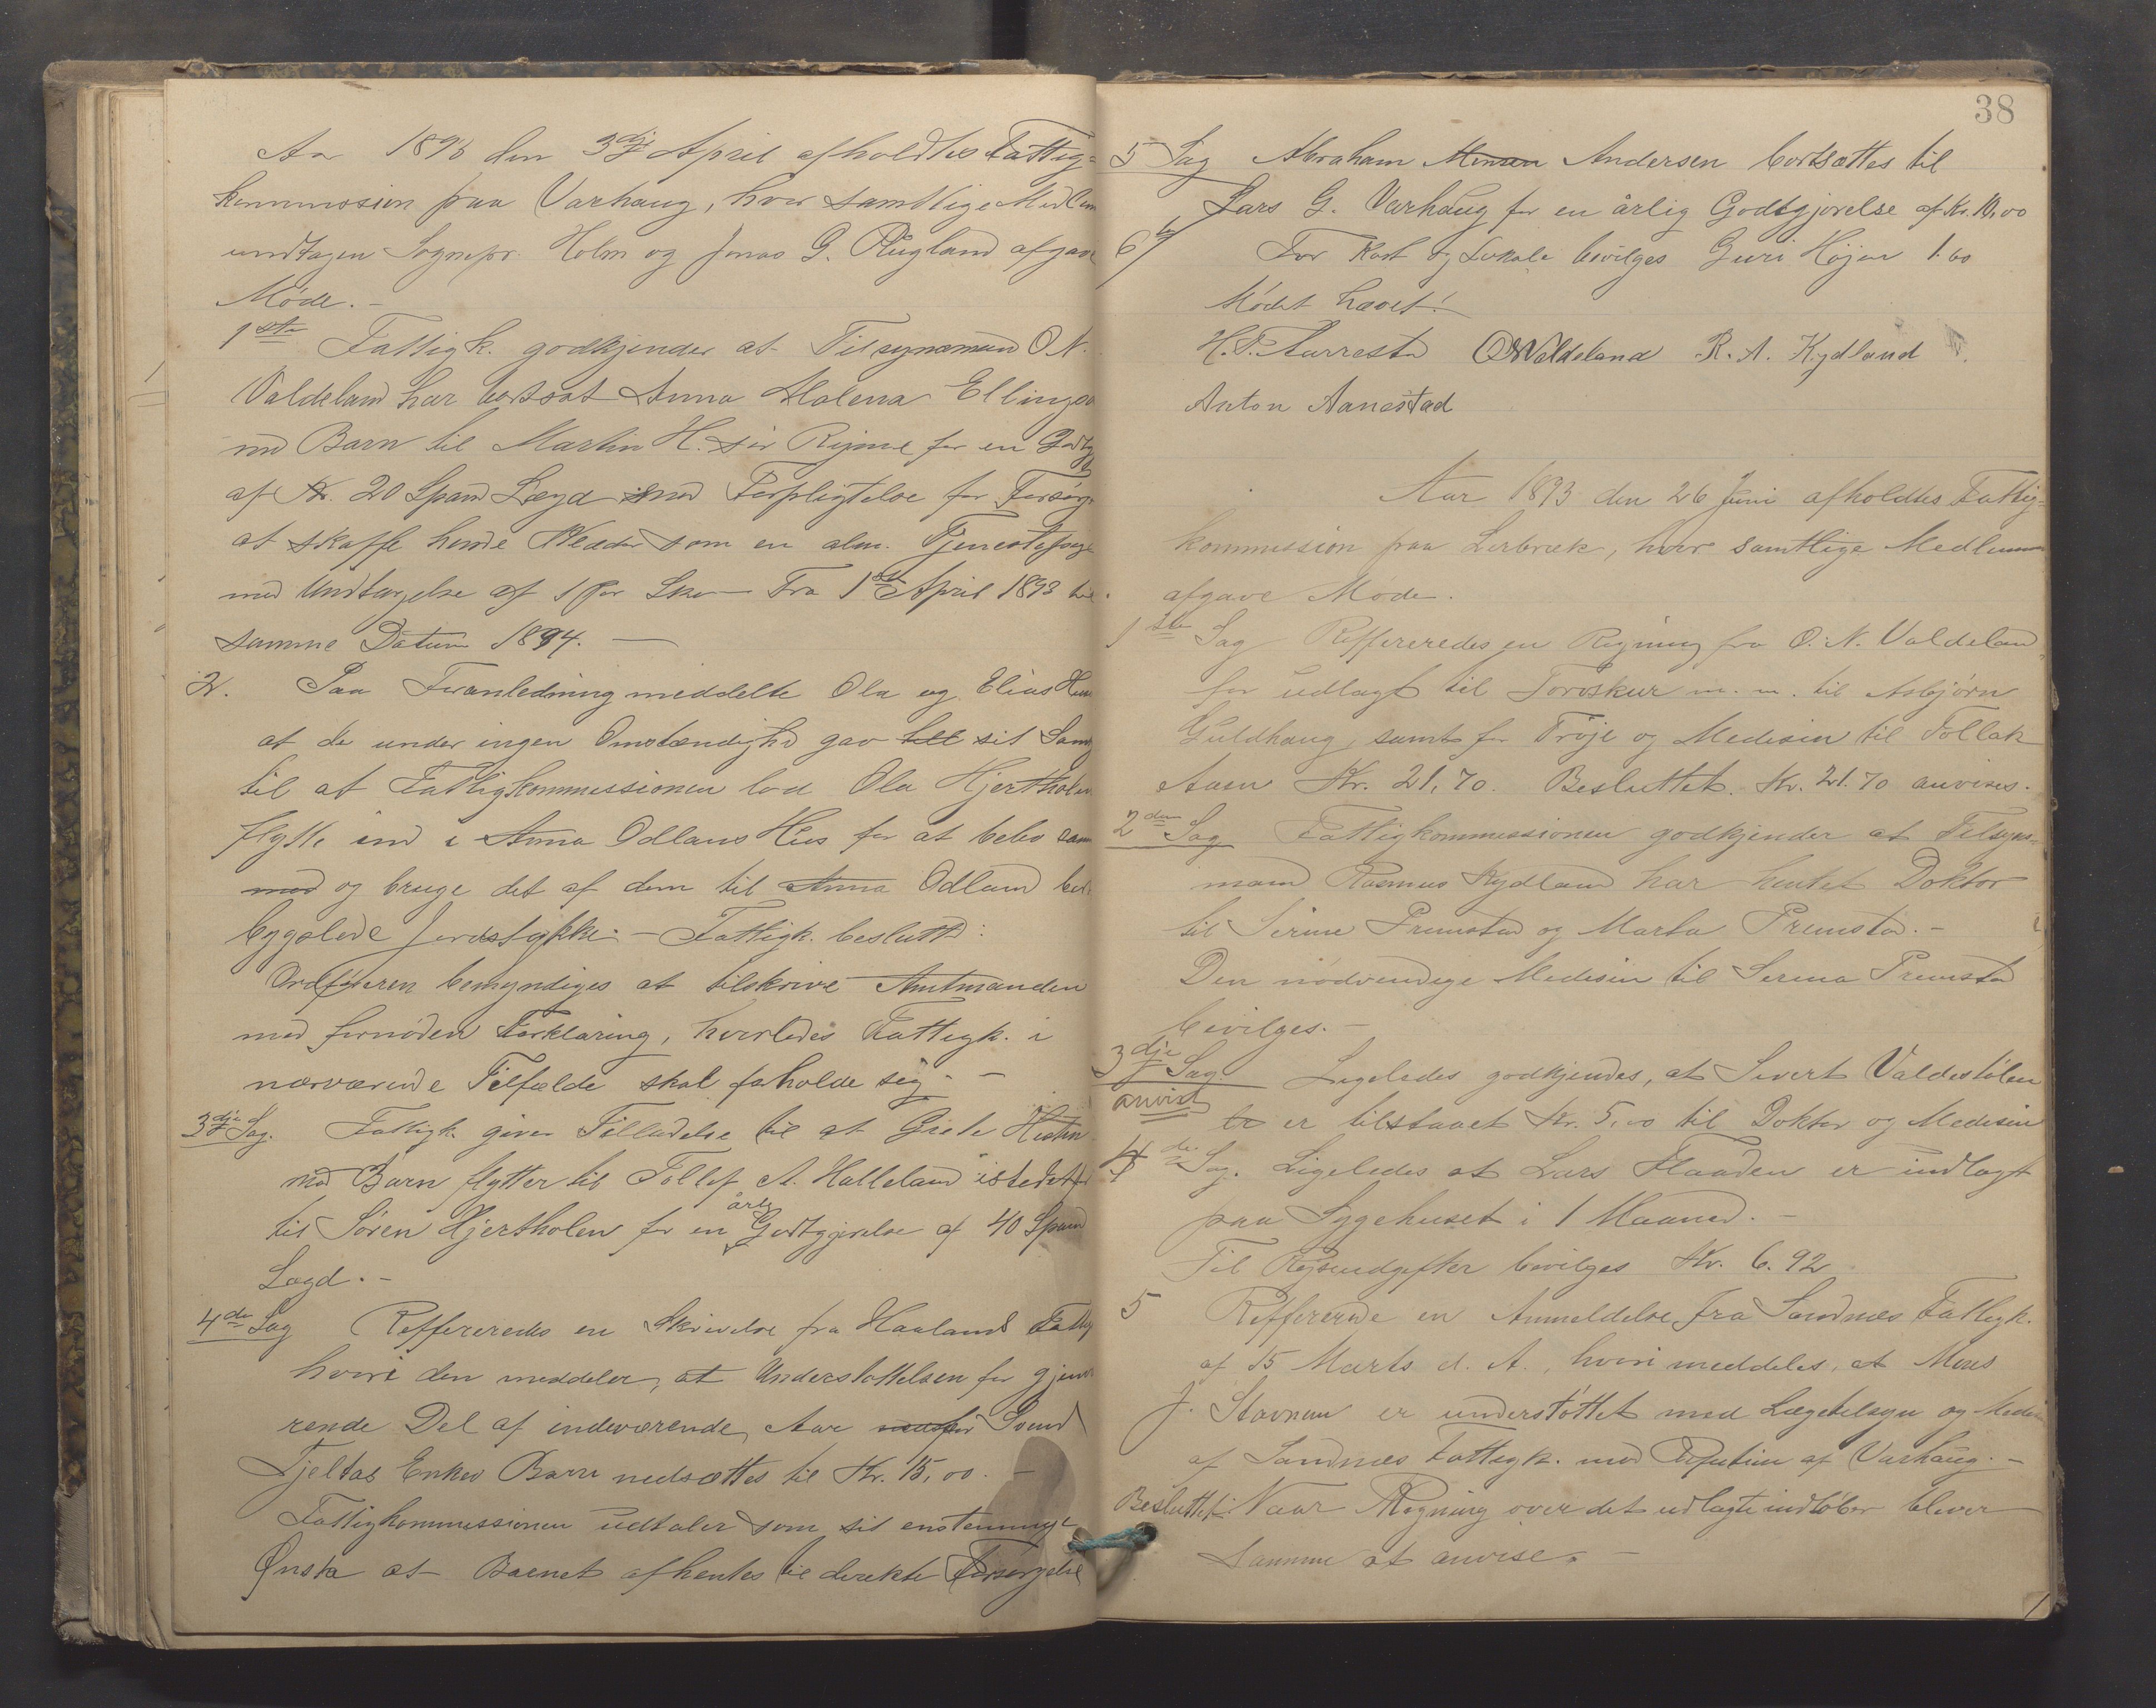 Aar 1893 den 3dje April afholdtes Fattig-
kommission paa Varhaug, hvor samtlige Medlem
undtagen Sognepr. Holm og Jonas G. Rugland afgav
Møde. -
1ste Fattigk. godkjender at Tilsynsmand O. N.
Valdeland har bortsat Anna Malena Ellingsd
med Barn til Martin H. sør Rejme for en Godtgj
af Kr. 20 Spand Lægd med Forpligtelse for Forsørg
at skaffe hende Klæder som en alm. Tjenestepige
med Undtagelse af 1 Par Sko - Fra 1ste April 1893 til
samme Datum 1894. -
2. Paa Foranledning meddelte Ola og Elias
at de under ingen Omstændighed gav sit Samt
til at Fattigkommissionen lod Ola Hjertholen
flytte ind i Anna Odlans Hus for at bebo sam
med og bruge det af dem til Anna Odland
bygslede Jordstykke: - Fattigk. besluttd:
Ordføreren bemyndiges at tilskrive Amtmanden
med fornøden Forklaring, hvorledes Fattigk. i
nærværende Tilfælde skal forholde sig. -
3dje Sag. Fattigk. giver Tilladelse til at Grete
med Barn flytter til Tollef A. Halleland istedetfor
til Søren Hjertholen for en årlig Godtgjørelse af 40 Spand
Lægd. -
4de Sag Reffereredes en Skrivelse fra Haaland Fattig
hvori den meddeler, at Understøttelsen for gjenvæ
rende Del af indeværende Aar
Fjeltas Enkes Barn nedsættes til Kr. 15,00. -
Fattigkommissionen udtaler som sit enstemmige
Ønske at Barnet afhentes til direkte Forsørgelse
38
5 Sag Abraham Andersen bortsættes til
Lars G. Varhaug for en årlig Godtgjørelse af Kr. 10,00
6te For Kost og Lokale bevilges Guri Højer 1.60
Mødet hævet!
H. P. Aarrestad O N Valdeland R. A. Kydland
Anton Aanestad
Aar 1893 den 26 Juni afholdtes Fattig-
kommission paa Lerbræk, hvor samtlige Medlemmer
afgave Møde.
1ste Sag Reffereredes en Regning fra O. N. Valdeland
for udlagt til Torvskur m. m. til Asbjørn
Guldhaug, samt for Trøje og Medisin til Tollak
Aaen Kr. 21,70. Besluttet. Kr. 21.70 anvises.
2den Sag Fattigkommissionen godkjender at Tilsyns-
mand Rasmus Kydland har hentet Doktor
til Serine Premstad og Marta Premstad. -
Den nødvendige Medisin til Serina Premstad
bevilges. -
3dje Sag. Ligeledes godkjendes, at Sivert Valdestølen
anvist er tilstaaet Kr. 5,00 til Doktor og Medisin
4de Sag. Ligeledes at Lars Flaaden er indlagt
paa Sygehuset i 1 Maaned. -
Til Rejseudgifter bevilges Kr. 6.92
5 Reffererede en Anmeldelse fra Sandnes Fattigk.
af 15 Marts d. A., hvori meddeles, at Mons
J. Stavnem er understøttet med Lægetilsyn og Medi
af Sandnes Fattigk. med Refution af Varhaug. -
Besluttet: Naar Regning over det udlagte indløber bliver
samme at anvise. -